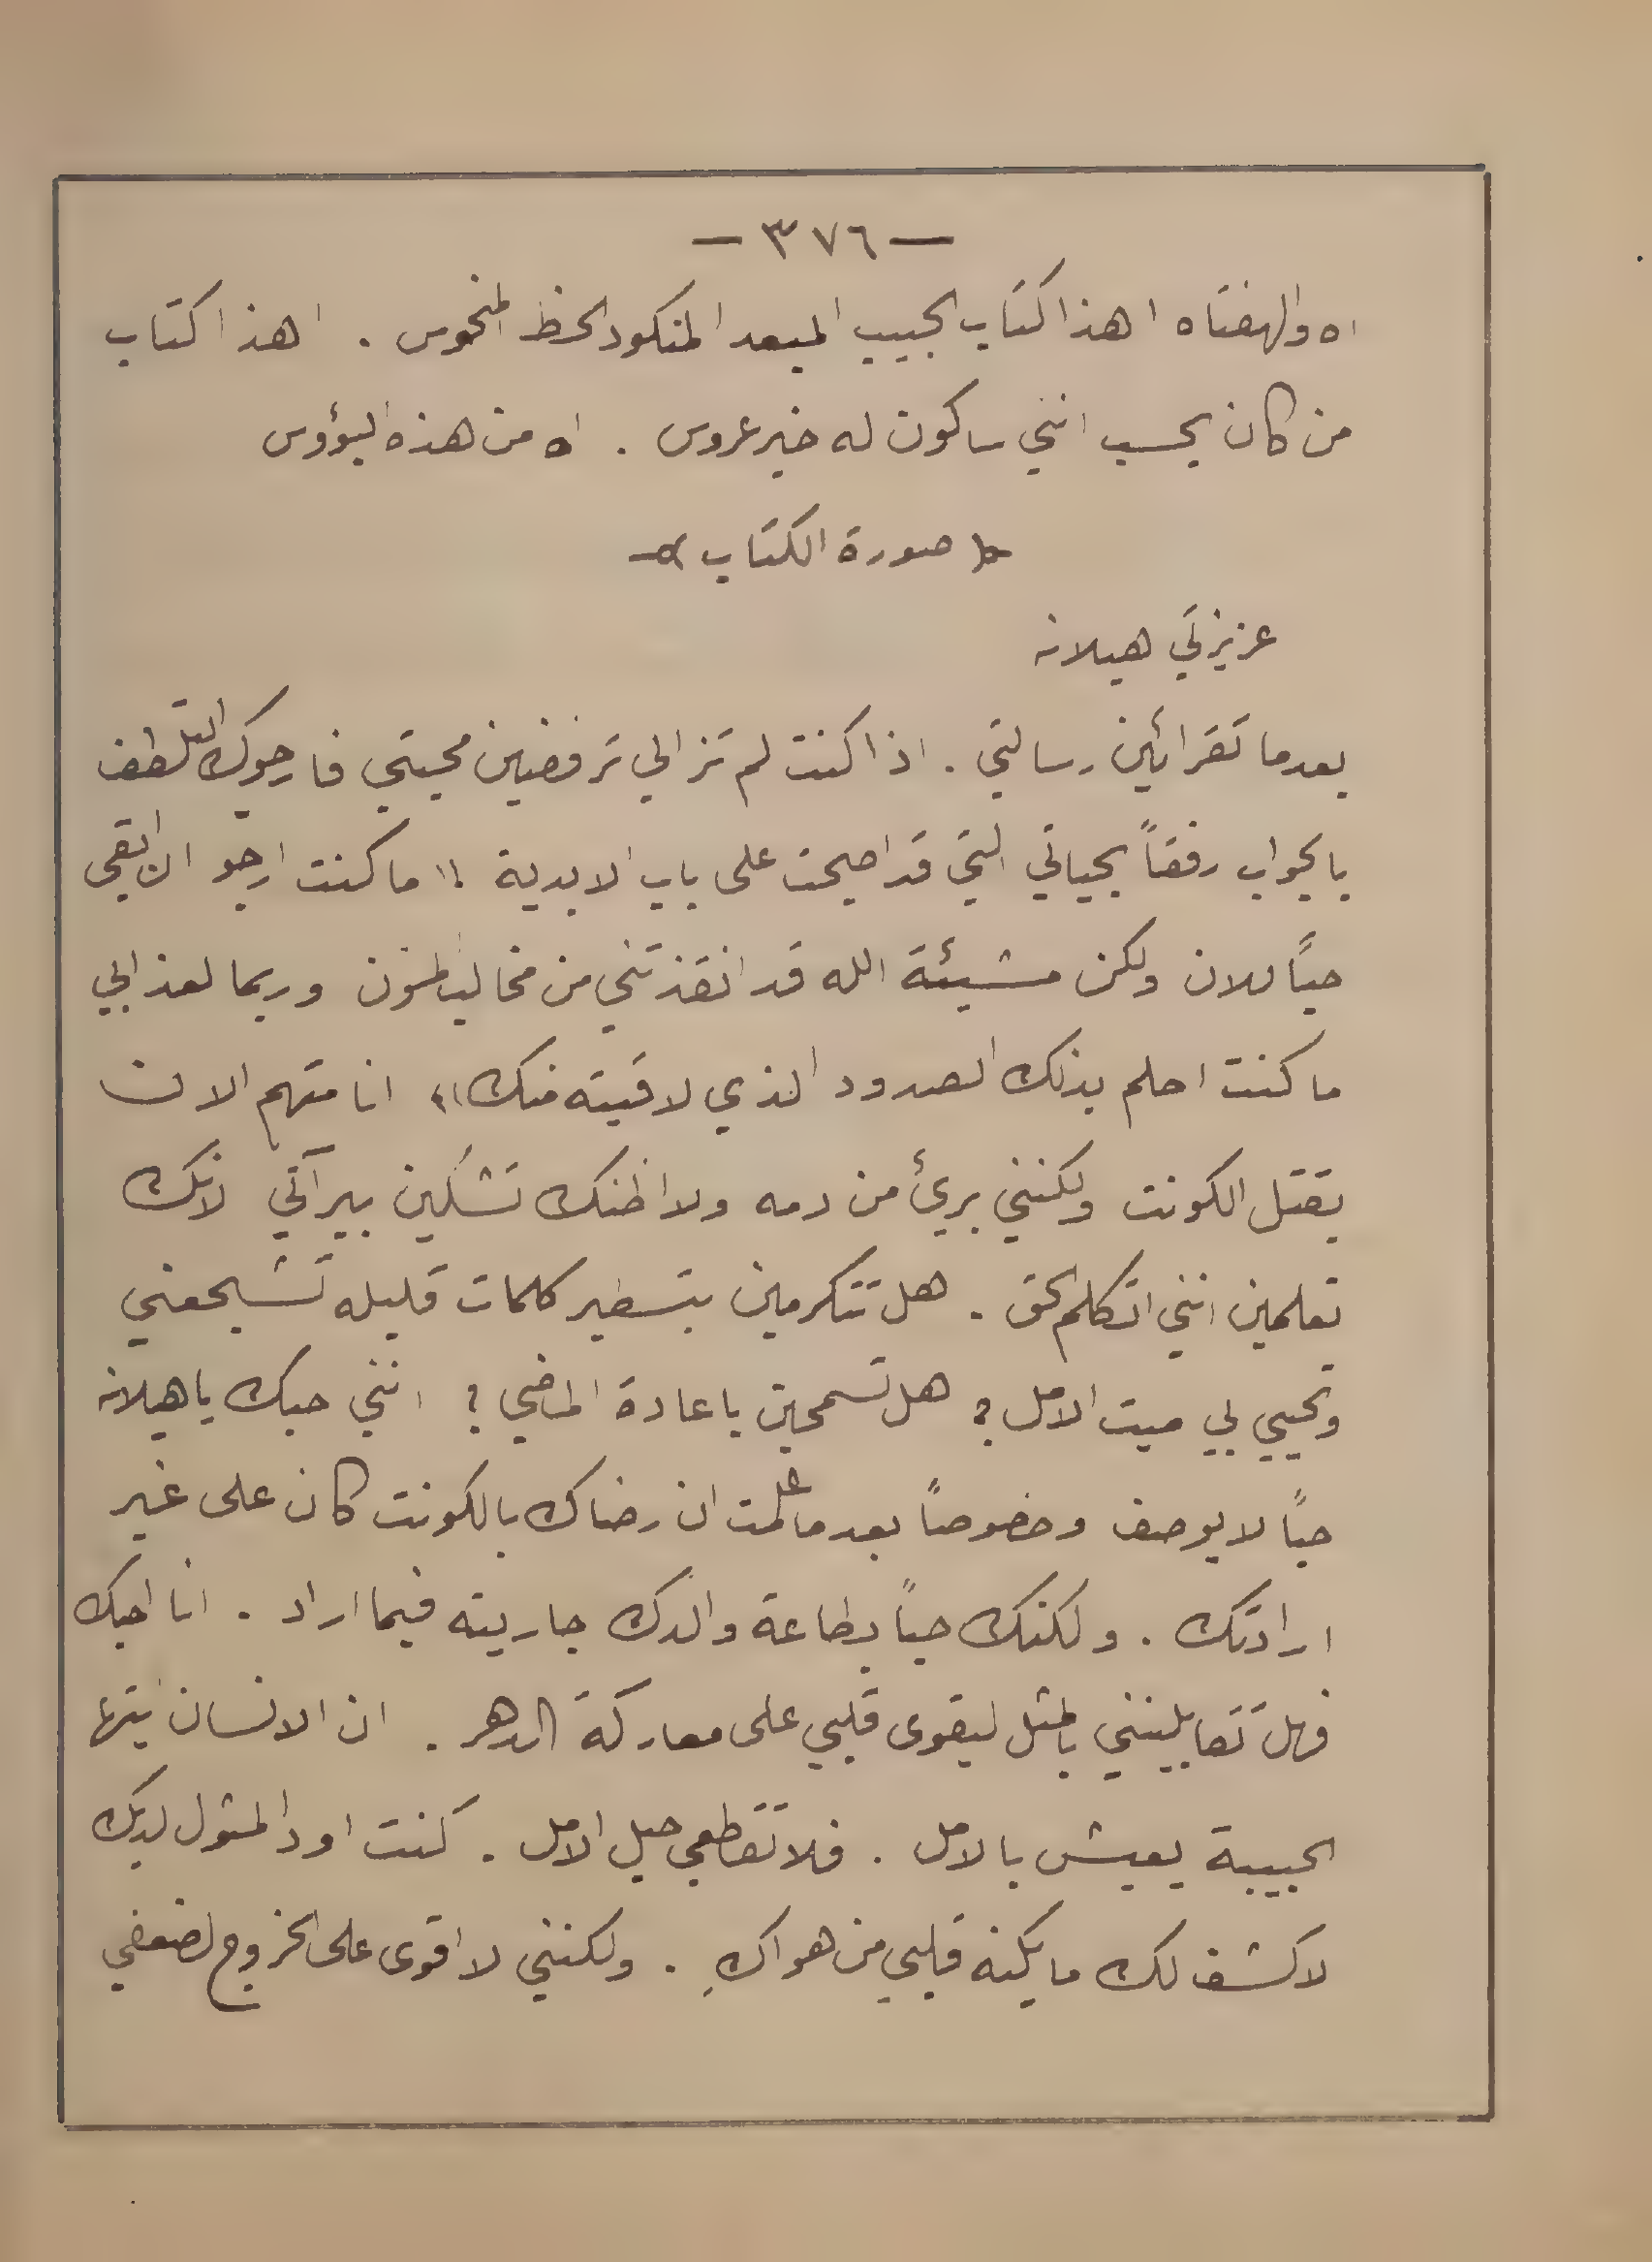 — ٣٧٦ —
اه والهفتاه اهذا كتاب الحبيب المبعد المنكود الحظ المنحوس . اهذا كتاب
من كان يحسب انني ساكون له خير عروس . اه من هذه البؤوس
صورة الكتاب
عزيزتي هيلانه
بعدما تقرائين رسالتي . اذا كنت لم تزالي ترفضين محبتي فارجوك التلطف
بالجواب رفقاً بحياتي التي قد اصبحت على باب الابدية !! ما كنت ارجو ان ابقى
حياً للان ولكن مشيئة الله قد انقذتني من مخاليب المنون وربما لعذابي
ما كنت احلم بذلك الصدود الذي لاقيته منك !! انا متهم الان
بقتل الكونت ولكنني بريئ من دمه ولا اظنك تشكين ببرآتي لانك
تعلمين انني اتكلم الحق . هل تتكرمين بتسطير كلمات قليله تشجعني
وتحيي بي ميت الامل ؟ هل تسمحين باعادة الماضي ؟ انني حبك يا هيلانه
حباً لا يوصف وخصوصاً بعدما علمت ان رضاك بالكونت كان على غير
ارادتك . ولكنك حباً بطاعة والدك جاريته فيما اراد . انا احبك
فهل تقابلينني بالمثل ليقوى قلبي على معاركة الدهر . ان الانسان ايتها
الحبيبة يعيش بالامل . فلا تقطعي حبل الامل . كنت اود المثول لديك
لاكشف لك ما يكنه قلبي من هواكِ . ولكنني لا اقوى على الخروج لضعفي